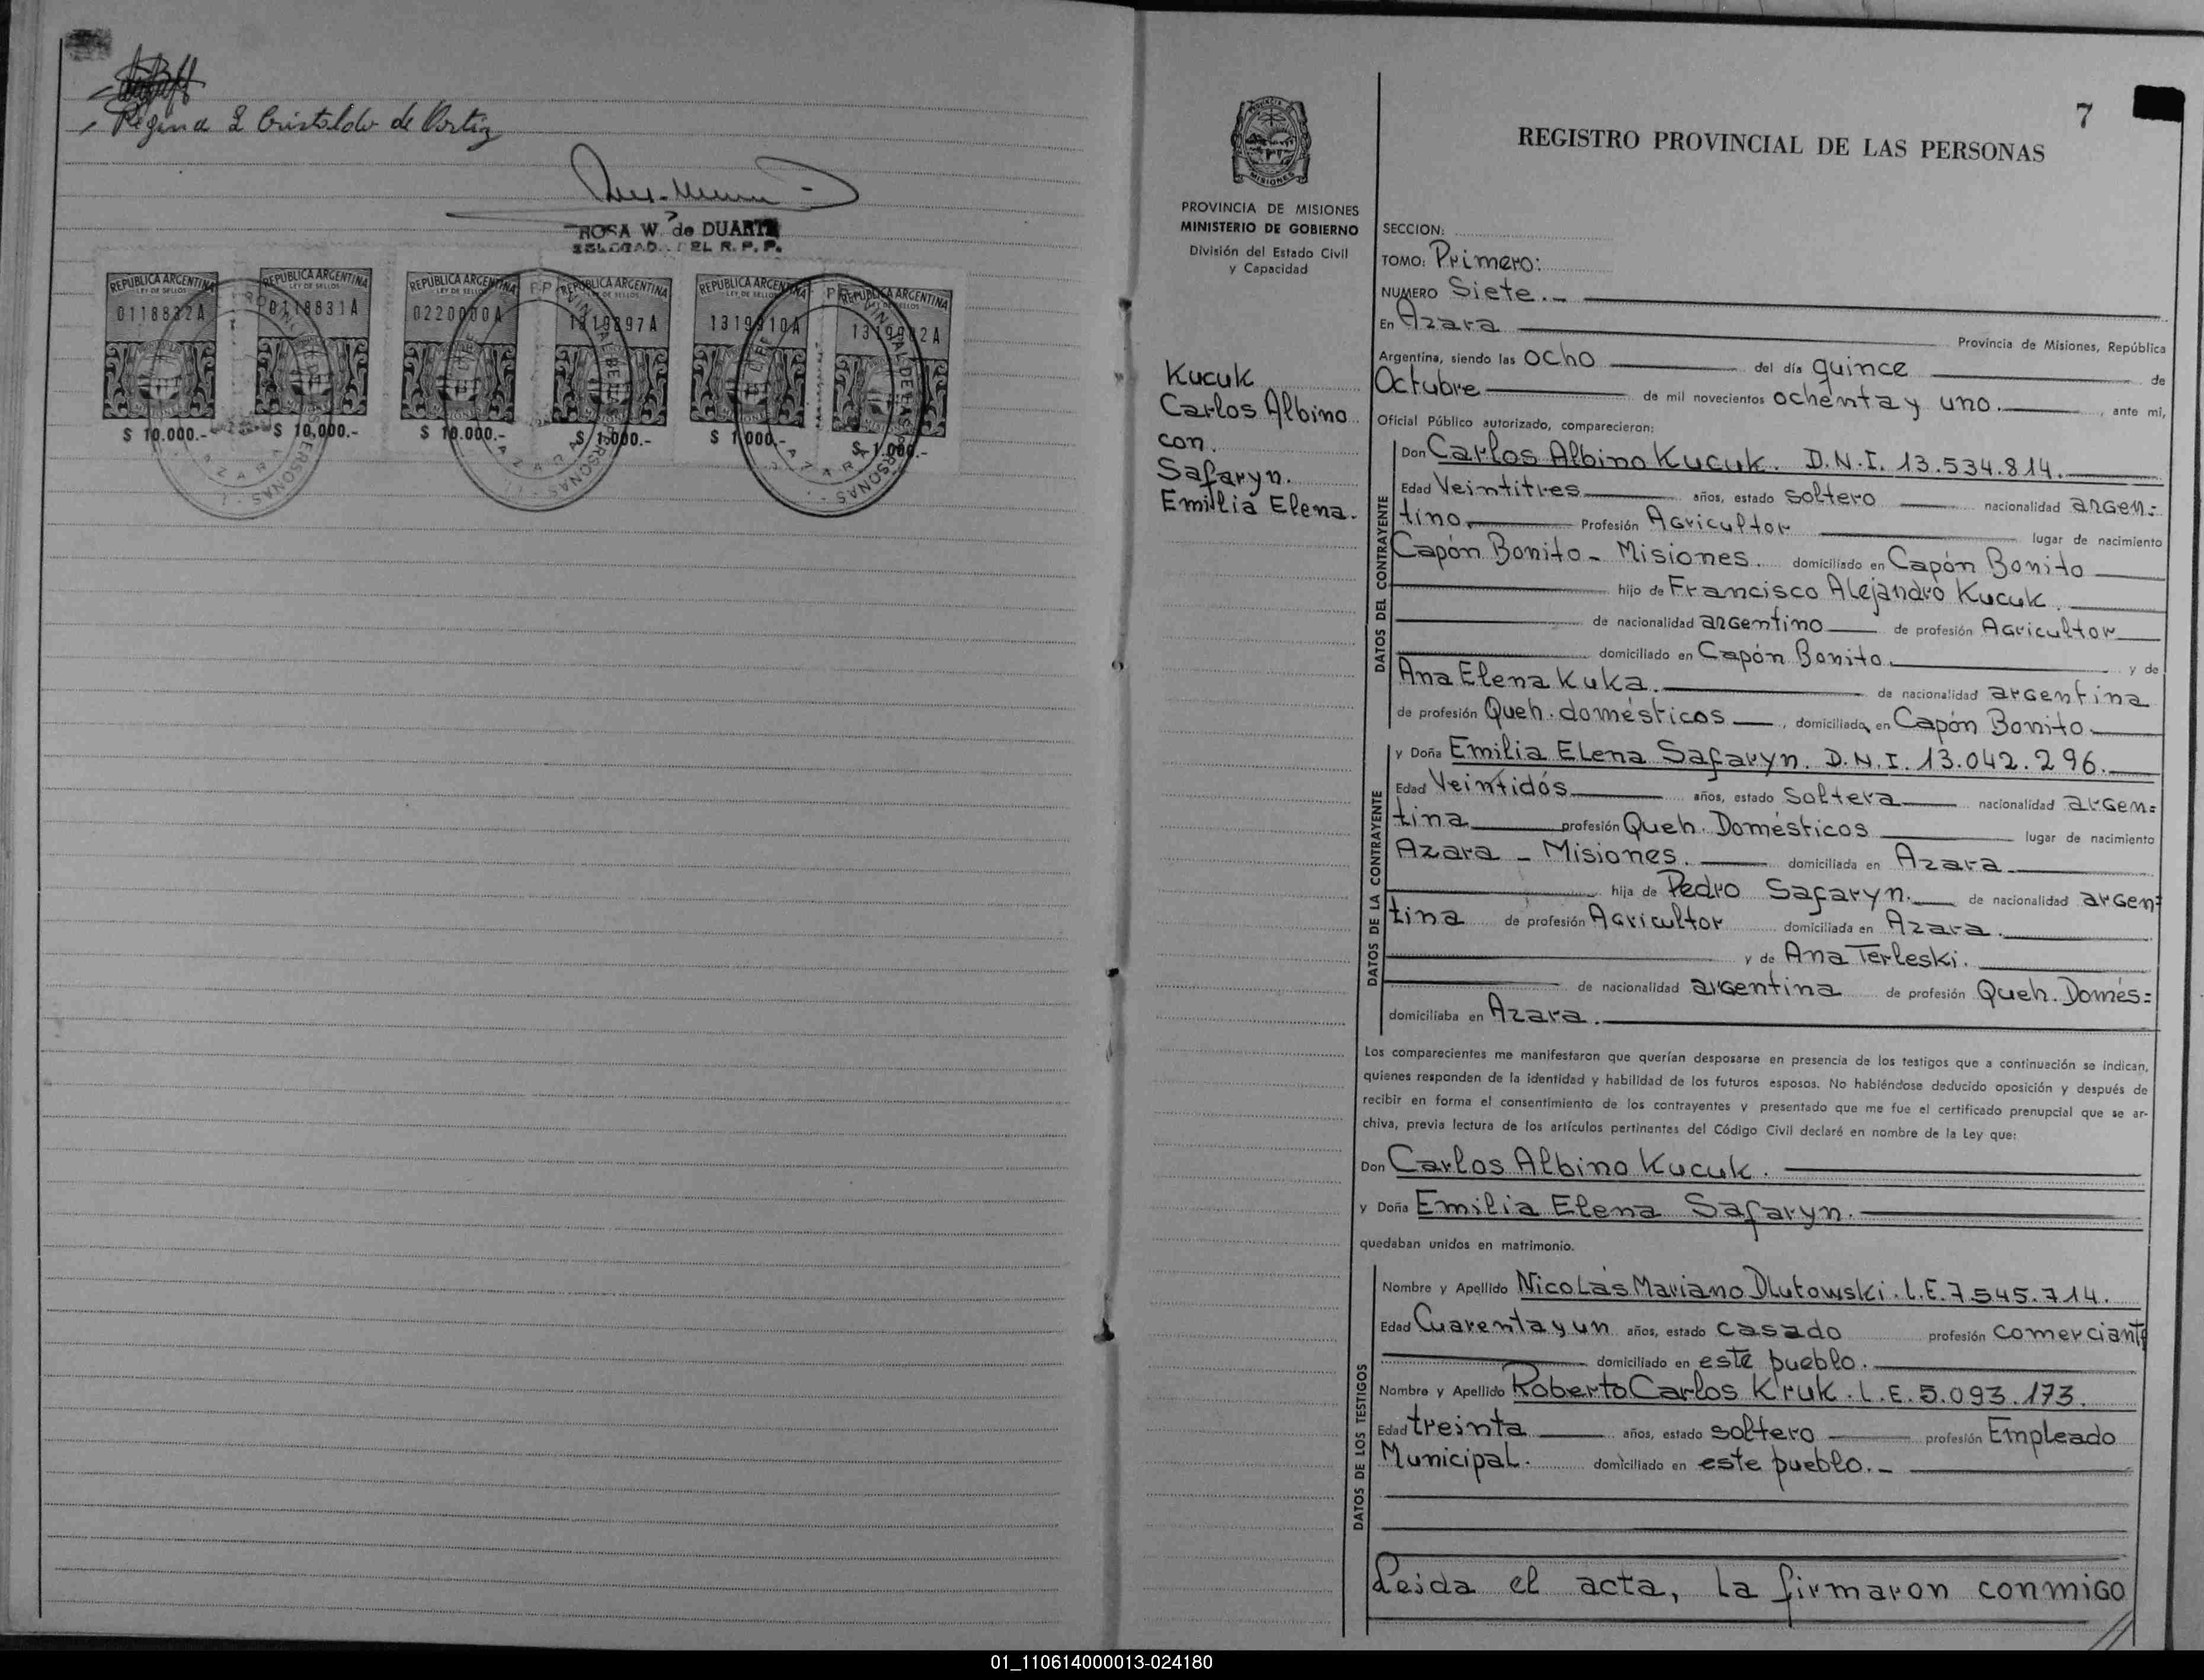 Regina L Cristaldo de Ortiz
ROSA W. de DUARTE
DEL R. P. P.
REPUBLICA ARGENTINA
LEY DE SELLOS
0118832A
$ 10.000.-
REPUBLICA ARGENTINA
LEY DE SELLOS
0118831A
$ 10.000.-
REPUBLICA ARGENTINA
LEY DE SELLOS
0220000A
$ 10.000.-
REPUBLICA ARGENTINA
LEY DE SELLOS
1319897A
$ 1.000.-
REPUBLICA ARGENTINA
LEY DE SELLOS
1319910A
$ 1.000.-
REPUBLICA ARGENTINA
LEY DE SELLOS
$ 1.000.-
AZARA
7
PROVINCIA DE
MISIONES
PROVINCIA DE MISIONES
MINISTERIO DE GOBIERNO
División del Estado Civil
y Capacidad
Kucuk
Carlos Albino
con.
Safaryn.
Emilia Elena.
REGISTRO PROVINCIAL DE LAS PERSONAS
SECCION:
TOMO: Primero:
NUMERO Siete.-
En Azara Provincia de Misiones, República
Argentina, siendo las ocho del día quince de
Octubre de mil novecientos ochenta y uno. , ante mi,
Oficial Público autorizado, comparecieron:
DATOS DEL CONTRAYENTE
Don Carlos Albino Kucuk. D.N.I. 13.534.814.
Edad Veintitres años, estado soltero nacionalidad argen=
tino, Profesión Agricultor lugar de nacimiento
Capón Bonito - Misiones. domiciliado en Capón Bonito
hijo de Francisco Alejandro Kucuk.
de nacionalidad argentino de profesión Agricultor
domiciliado en Capón Bonito. y de
Ana Elena Kuka. de nacionalidad argentina
de profesión Queh. domésticos , domiciliada en Capón Bonito.
DATOS DE LA CONTRAYENTE
y Doña Emilia Elena Safaryn. D.N.I. 13.042.296.
Edad Veintidós años, estado Soltera nacionalidad argen=
tina profesión Queh. Domésticos lugar de nacimiento
Azara - Misiones. domiciliada en Azara.
hija de Pedro Safaryn. de nacionalidad argen=
tina de profesión Agricultor domiciliada en Azara.
y de Ana Terleski.
de nacionalidad argentina de profesión Queh. Domés=
domiciliaba en Azara.
Los comparecientes me manifestaron que querían desposarse en presencia de los testigos que a continuación se indican,
quienes responden de la identidad y habilidad de los futuros esposos. No habiéndose deducido oposición y después de
recibir en forma el consentimiento de los contrayentes y presentado que me fue el certificado prenupcial que se ar-
chiva, previa lectura de los artículos pertinentes del Código Civil declaré en nombre de la Ley que:
Don Carlos Albino Kucuk.
y Doña Emilia Elena Safaryn.
quedaban unidos en matrimonio.
DATOS DE LOS TESTIGOS
Nombre y Apellido Nicolás Mariano Dlutowski. L.E. 7.545.714.
Edad Cuarenta y un años, estado casado profesión comerciante
domiciliado en este pueblo.
Nombre y Apellido Roberto Carlos Kruk. L.E. 5.093.173.
Edad treinta años, estado soltero profesión Empleado
Municipal. domiciliado en este pueblo.-
Leida el acta, la firmaron conmigo
01_110614000013-024180